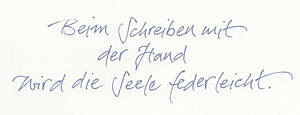 Beim Schreiben mit
der Hand
wird die Seele federleicht.